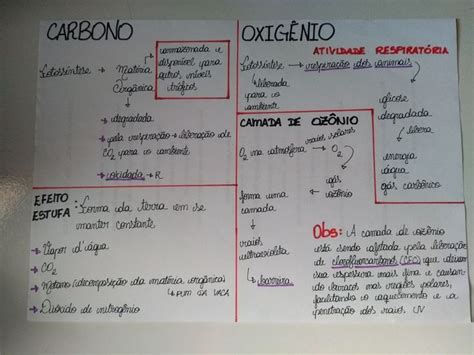 CARBONO
Fotossíntese → Matéria
Orgânica
armazenada e
disponível para
outros níveis
tróficos
→ degradada
→ pela respiração → liberação de
CO2 para o ambiente
→ oxidada → R
EFEITO
ESTUFA : Forma da terra em se
manter constante
→ Vapor d'água
→ CO2
→ Metano (decomposição da matéria orgânica)
↳ PUM DA VACA
→ Dióxido de nitrogênio
OXIGÊNIO
ATIVIDADE RESPIRATÓRIA
Fotossíntese → respiração dos animais
liberada
para o
ambiente
glicose
degradada
libera
energia
água
gás carbônico
CAMADA DE OZÔNIO
raios solares
O2 na atmosfera → O2
gás
ozônio
forma uma
camada
raios
ultravioleta
barreira
Obs: A camada de ozônio
está sendo afetada pela liberação
de clorofluorcarbonos (CFC) que deixam
sua espessura mais fina e causan-
do buracos nas regiões polares,
facilitando o aquecimento e a
penetração dos raios UV